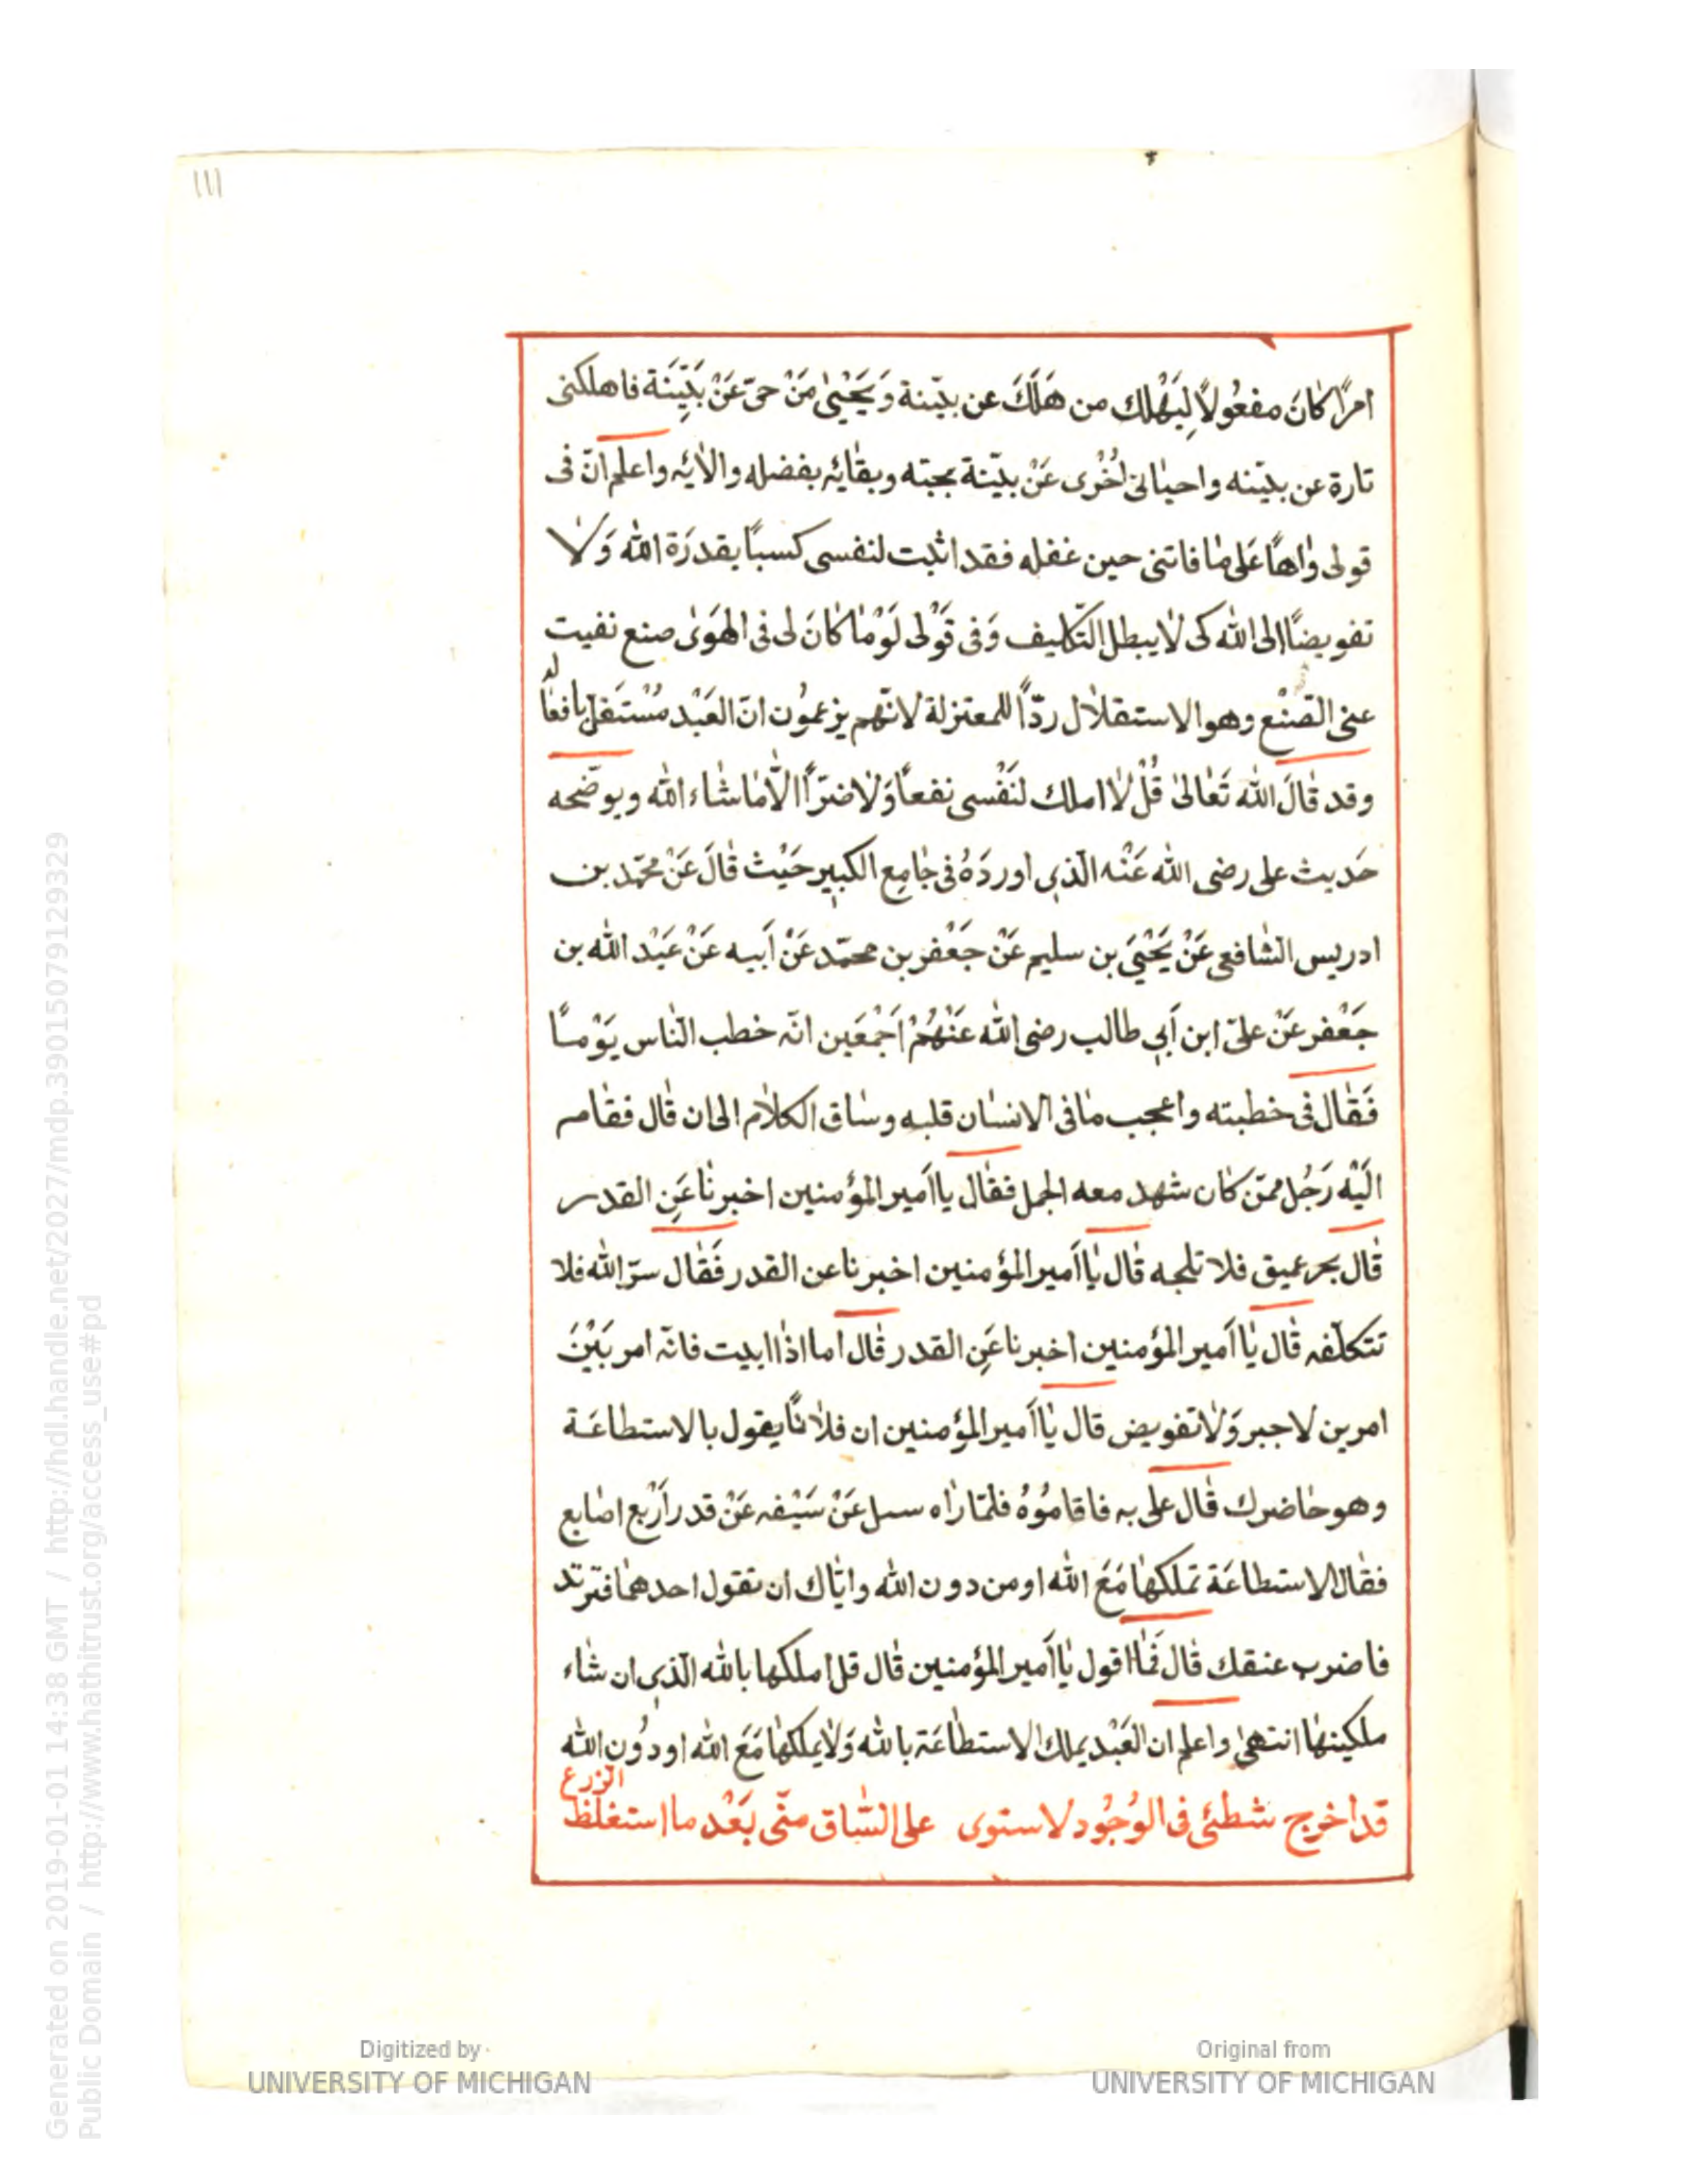 ١١١
امرًا كانَ مفعُولًا لِيَهْلك من هَلَكَ عن بيّنة وَيَحْيٰى مَنْ حىّ عَنْ بَيِّنَة فاهلكنى
تارة عن بيّنه واحيانى اُخْرى عَنْ بيّنة بمحبته وبقائه بفضله والائه واعلم انّ فى
قولى واهاً عَلى ما فاتنى حين غفله فقد اثبت لنفسى كسبًا بقدرَة الله وَلا
تفويضًا الى الله كى لا يبطل التّكليف وَفى قَوْلى لَوْمَا كانَ لى فى الهَوىٰ صنع نفيت
عنى الصّنْع وهو الاستقلال ردّاً للمعتزلة لانّهم يزعمُون انّ العَبْد مُسْتَقل بافعاله
وقد قالَ الله تَعَالىٰ قُلْ لا املك لنَفْسى نفعاً وَلا ضرّاً الّا ما شاء الله ويوضّحه
حَديث على رضى الله عَنْه الّذى اوردَهُ فى جامِع الكبير حَيْث قالَ عَنْ محمّد بن
ادريس الشافعى عَنْ يَحْيَى بن سليم عَنْ جَعْفر بن محمّد عَنْ اَبيه عَنْ عَبْد الله بن
جَعْفر عَنْ علىّ ابن اَبى طالب رضى الله عَنْهُمْ اَجْمَعَين انّه خطب النّاس يَوْمًا
فَقال فى خطبته واعجب ما فى الانسان قلبه وساق الكلام الى ان قال فقام
الَيْه رَجُل ممّن كان شهد معه الجمل فقال يا اَمير المؤمنين اخبرنا عَنِ القدر
قال بحر عميق فلا تلجه قال يا اَمير المؤمنين اخبرنا عن القدر فَقال سرّ الله فلا
تتكلّفه قال يا اَمير المؤمنين اخبرنا عَنِ القدر قال اما اذا ابيت فانّه امر بَيْنَ
امرين لا جبر وَلا تفويض قال يا اَمير المؤمنين ان فلانًا يقول بالاستطاعَة
وهو حاضرك قال على به فاقامُوهُ فلمّا راه سل عَنْ سَيْفه عَنْ قدر اَرْبع اصابع
فقال الاستطاعَة تملكها مَعَ الله او من دون الله وايّاك ان تقول احدهما فترتد
فاضرب عنقك قال فَما اقول يا اَمير المؤمنين قال قل املكها بالله الّذى ان شاء
ملكينها انتهىٰ واعلم ان العَبْد يملك الاستطاعَة بالله وَلا يملكها مَعَ الله او دُون الله
قد اخرج شطئى فى الوُجُود لاستوى على السّاق منّى بَعْد ما استغلظ الزرع
Digitized by
UNIVERSITY OF MICHIGAN
Original from
UNIVERSITY OF MICHIGAN
Generated on 2019-01-01 14:38 GMT / http://hdl.handle.net/2027/mdp.39015079129329
Public Domain / http://www.hathitrust.org/access_use#pd